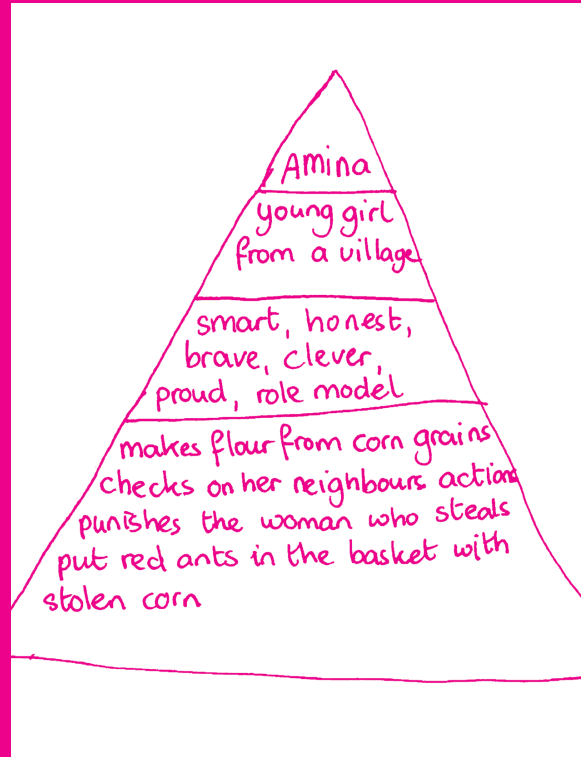 Amina
young girl
from a village
smart, honest,
brave, clever,
proud, role model
makes flour from corn grains
checks on her neighbours actions
punishes the woman who steals
put red ants in the basket with
stolen corn